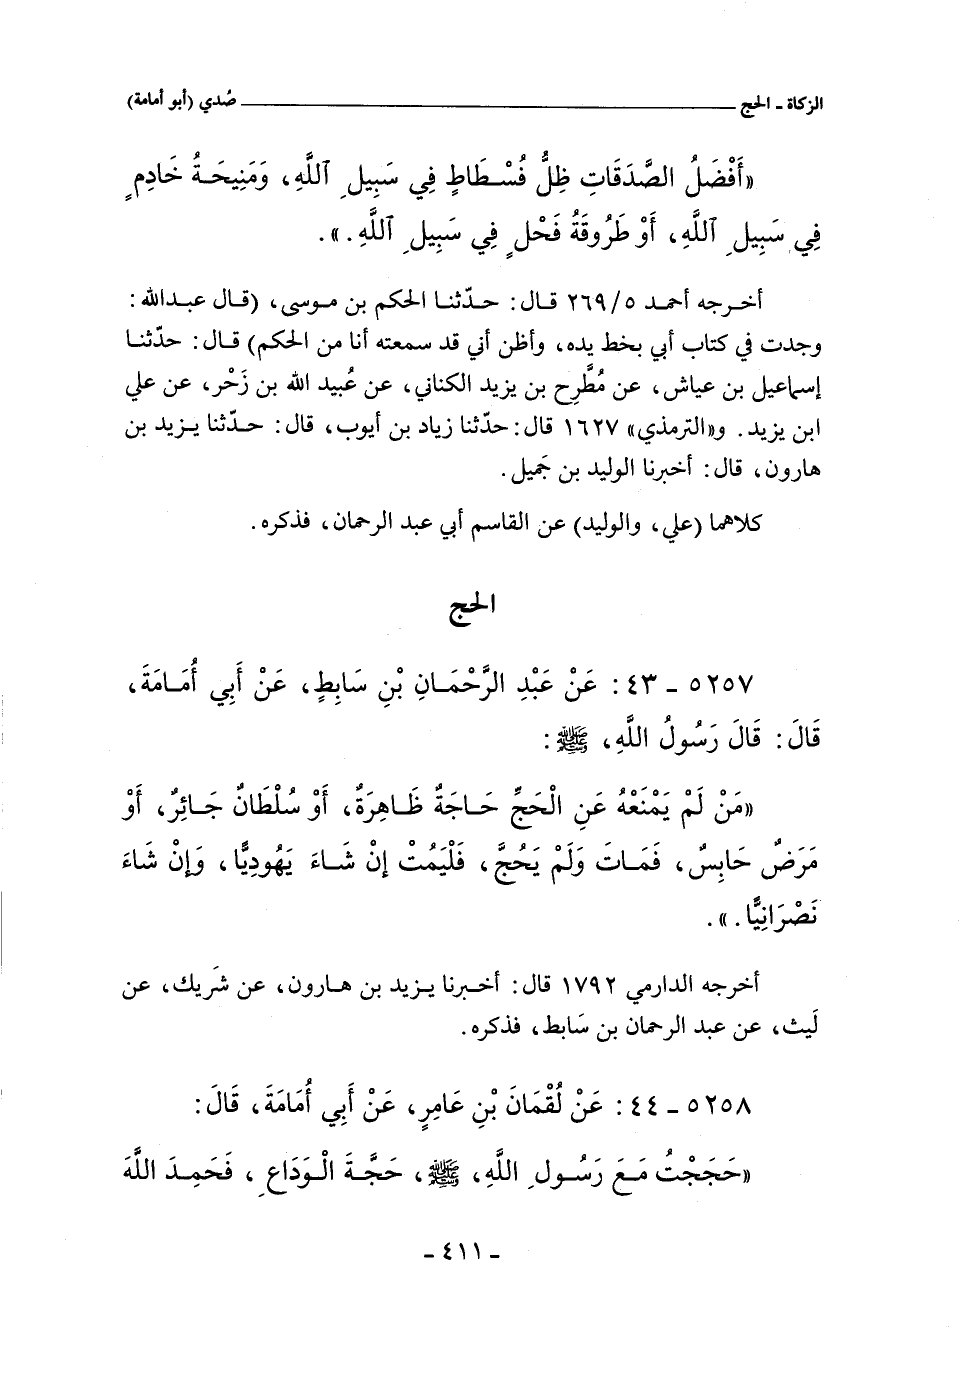 الزكاة ـ الحج ــــــ صُدي (أبو أمامة)
«أَفْضَلُ الصَّدَقَاتِ ظِلُّ فُسْطَاطٍ فِي سَبِيلِ ٱللَّهِ، وَمَنِيحَةُ خَادِمٍ
فِي سَبِيلِ ٱللَّهِ، أَوْ طَرُوقَةُ فَحْلٍ فِي سَبِيلِ ٱللَّهِ.».
أخرجه أحمد ٢٦٩/٥ قال: حدّثنا الحكم بن موسى، (قال عبدالله:
وجدت في كتاب أبي بخط يده، وأظن أني قد سمعته أنا من الحكم) قال: حدّثنا
إسماعيل بن عياش، عن مُطَّرِح بن يزيد الكناني، عن عُبيد الله بن زَحْر، عن علي
ابن يزيد. و«الترمذي» ١٦٢٧ قال: حدّثنا زياد بن أيوب، قال: حدّثنا يزيد بن
هارون، قال: أخبرنا الوليد بن جَميل.
كلاهما (علي، والوليد) عن القاسم أبي عبد الرحمان، فذكره.
الحج
٥٢٥٧ ـ ٤٣: عَنْ عَبْدِ الرَّحْمَانِ بْنِ سَابِطٍ، عَنْ أَبِي أُمَامَةَ،
قَالَ: قَالَ رَسُولُ اللَّهِ، ﷺ:
«مَنْ لَمْ يَمْنَعْهُ عَنِ الْحَجِّ حَاجَةٌ ظَاهِرَةٌ، أَوْ سُلْطَانٌ جَائِرٌ، أَوْ
مَرَضٌ حَابِسٌ، فَمَاتَ وَلَمْ يَحُجَّ، فَلْيَمُتْ إِنْ شَاءَ يَهُودِيًّا، وَإِنْ شَاءَ
نَصْرَانِيًّا.».
أخرجه الدارمي ١٧٩٢ قال: أخبرنا يزيد بن هارون، عن شَريك، عن
لَيث، عن عبد الرحمان بن سَابط، فذكره.
٥٢٥٨ ـ ٤٤: عَنْ لُقْمَانَ بْنِ عَامِرٍ، عَنْ أَبِي أُمَامَةَ، قَالَ:
«حَجَجْتُ مَعَ رَسُولِ اللَّهِ، ﷺ، حَجَّةَ الْوَدَاعِ، فَحَمِدَ اللَّهَ
ـ ٤١١ ـ